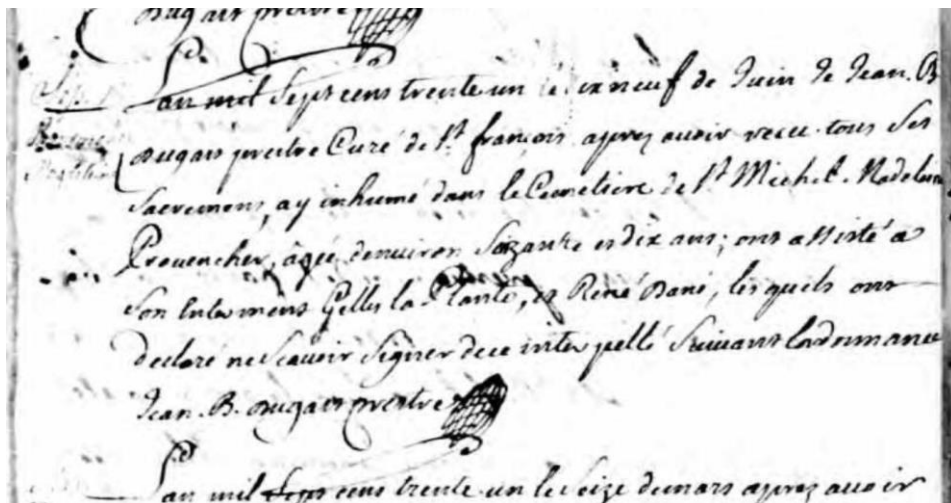 Dugast prestre
Lan mil Sept cens trente un le dixneuf de Juin Je Jean. B
Dugast prestre Curé de St. françois apres avoir recu tous Ses
Sacremens, ay inhumé dans le Cemetiere de St Michel. Madelaine
Provencher, agée denviron Soizante et dix ans; ont assisté a
Son Enterrement Gilles la Plante, et René Dani, lesquels ont
declaré ne Scavoir Signer de ce interpellé Suivant Lordonnance
Jean. B. Dugast prestre
Lan mil Sept cens trente un le Seize de mars apres avoir